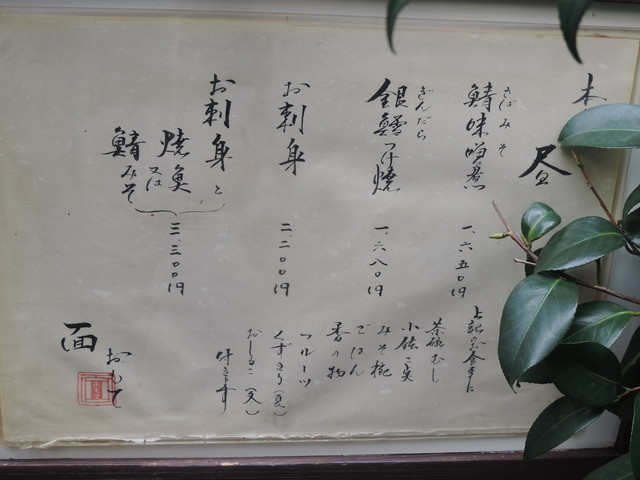 昼
さばみそ
鯖味噌煮 一、六五〇円
ぎんだら
銀鱈つけ焼 一、六八〇円
お刺身 二、二〇〇円
お刺身と
焼魚
又は
鯖みそ
三、三〇〇円
上記のお食事に
茶碗むし
小鉢二実
みそ椀
ごはん
香の物
フルーツ
くずきり(夏)
おしるこ(冬)
付きます
おもて
面